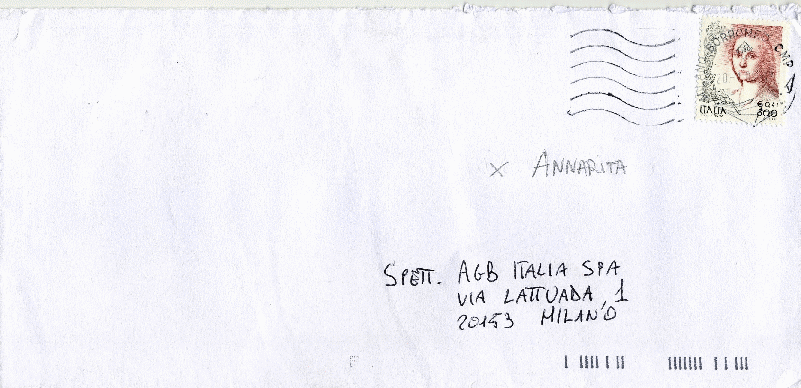 BORROMEO CMP
ITALIA 800
x ANNARITA
SPETT. AGB ITALIA SPA
VIA LATTUADA, 1
20153 MILANO